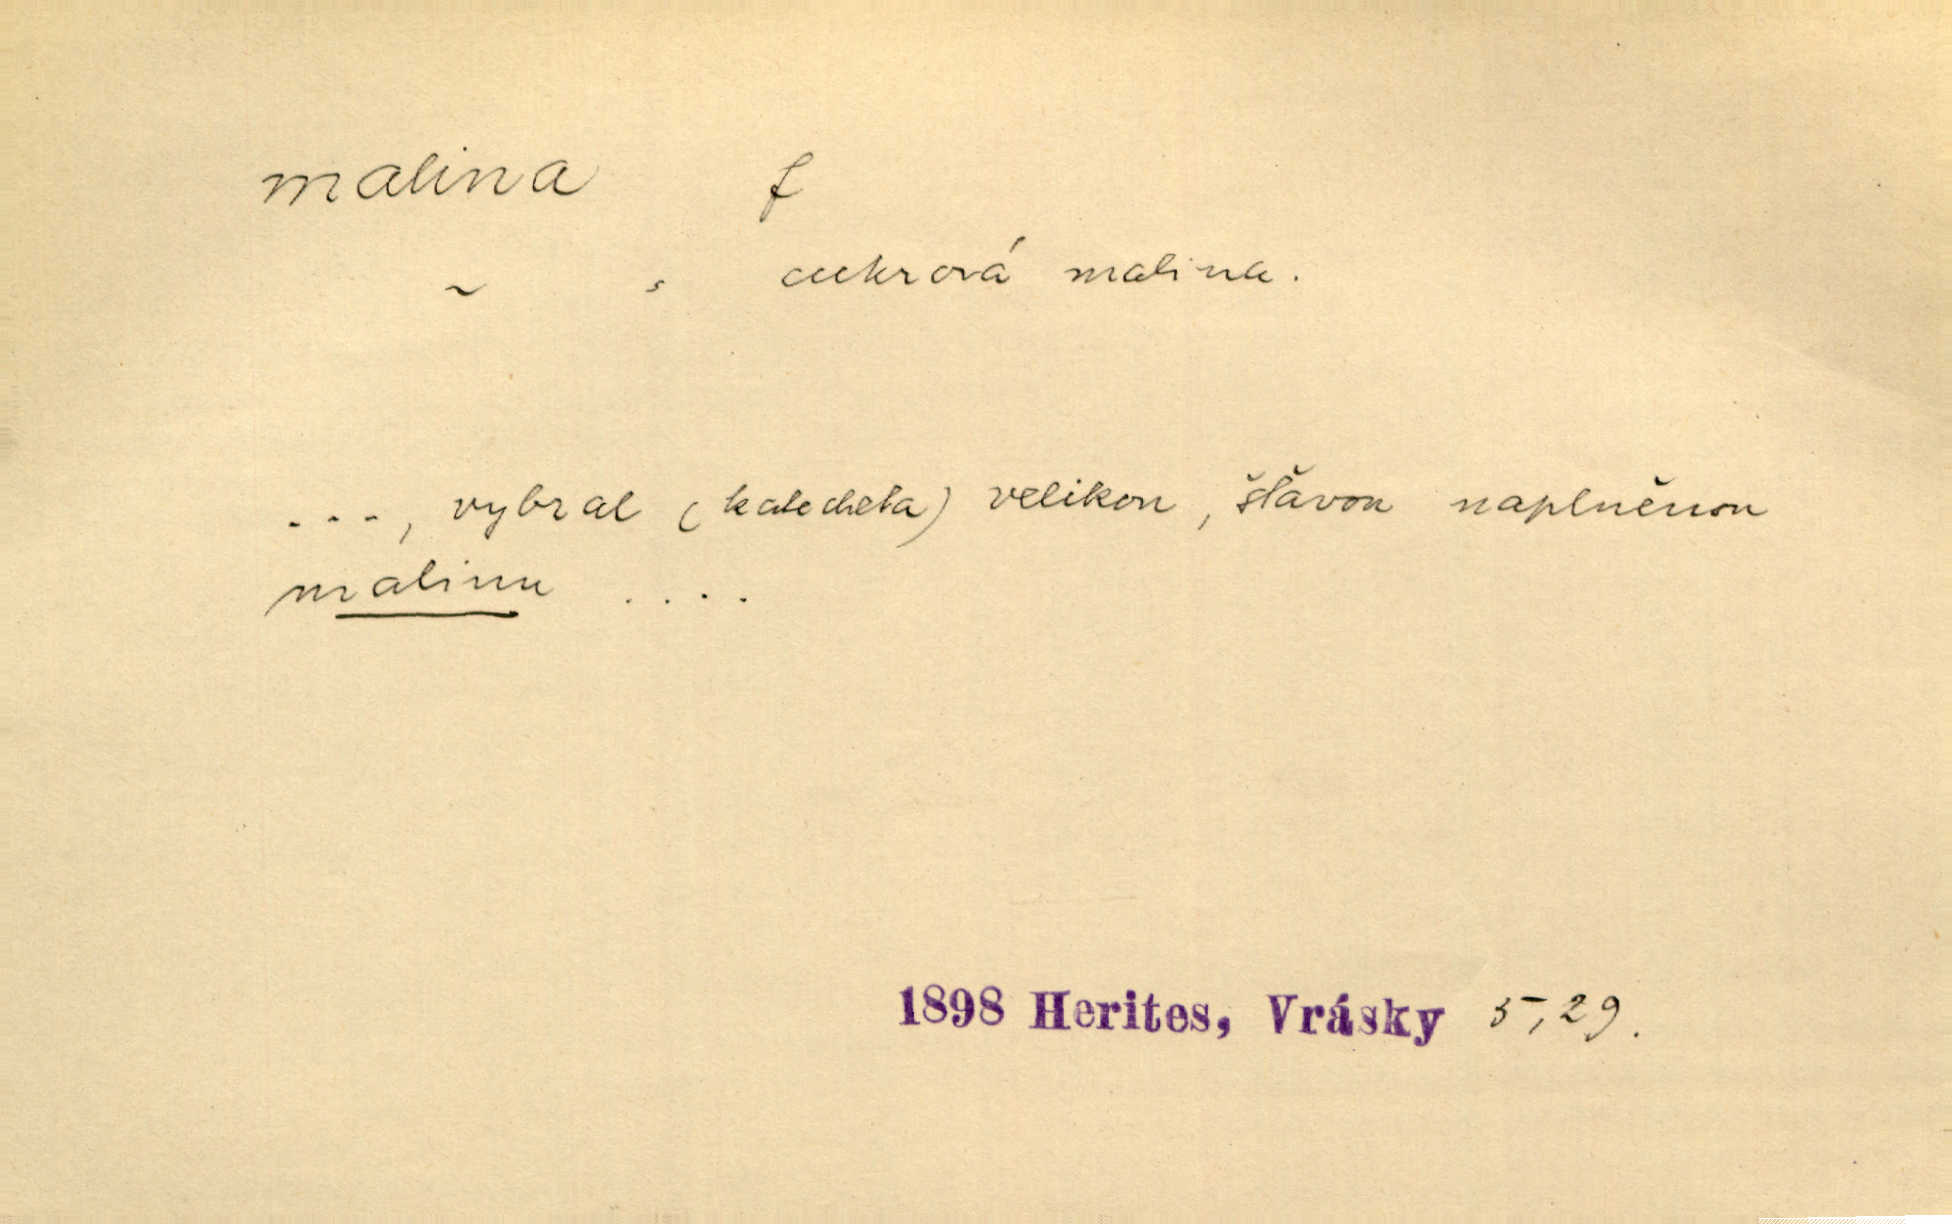 malina f
~ , cukrová malina.
..., vybral (katecheta) velikou, šťávou naplněnou
malinu ....
1898 Herites, Vrásky 5,29.